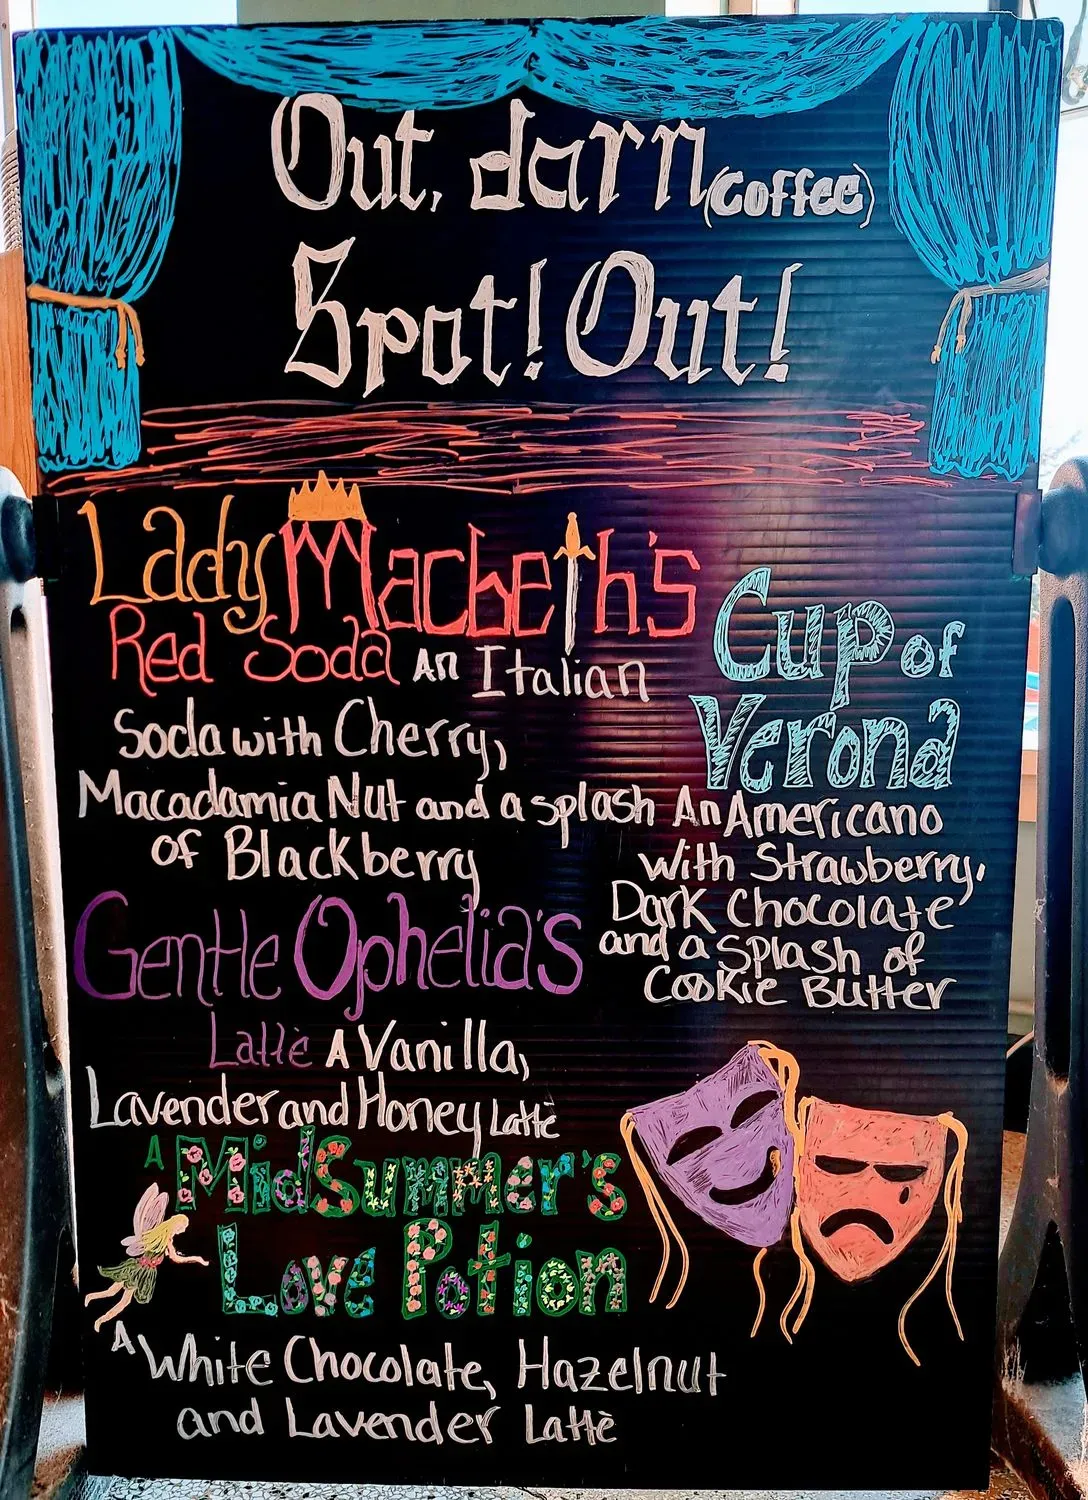 Out, darn (Coffee)
Spot! Out!
Lady Macbeth's
Red Soda An Italian
Soda with Cherry,
Macadamia Nut and a splash
of Blackberry
Cup of
Verona
An Americano
with Strawberry,
Dark Chocolate
and a splash of
Cookie Butter
Gentle Ophelia's
Lattè A Vanilla,
Lavender and Honey Lattè
A MidSummer's
Love Potion
A White Chocolate, Hazelnut
and Lavender Lattè